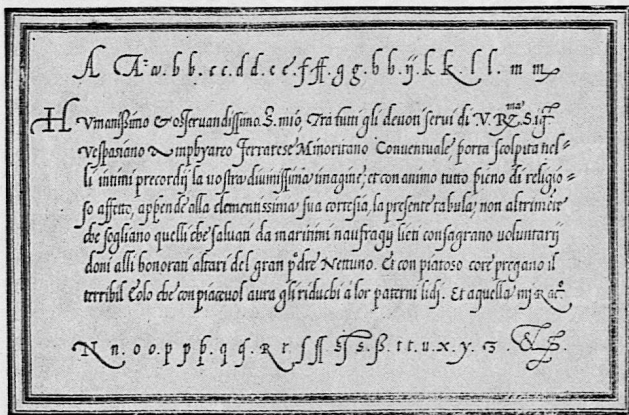 A A a. b b. c c. d d. e e. f ff. g g. h h. ij. k k. l l. m m
Humanißimo & osseruandissimo. S. mió, Tra tutti gli deuoti serui di V. Rma. S. iql
Vespasiano Amphyareo Ferrarese Minoritano Conuentuale, porta scolpita nel=
li intimi precordij la uostra diuinissima imagine, et con animo tutto pieno di religio=
so affetto, appende alla clementissima sua cortesia, la presente tabula, non altrimēte
che sogliano quelli che saluati da maritimi naufragij lieti consagrano uoluntarij
doni alli honorati altari del gran pādre Nettuno. Et con piatoso core pregano il
terribil Eolo che con piaceuol aura gli riduchi a lor paterni lidi. Et a quella mi Racō.
N n. o o. p p. p. q q. R r. s ss. s s. ß. t t. u. x. y. z. &